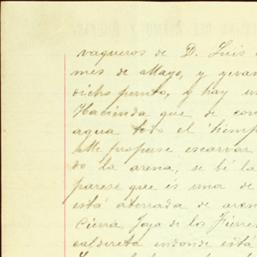 vaqueros de D. Luis
mes de Mayo, y
dicho punto, y hay un
Hacienda que de con
agua todo el tiempo
Me propuse escarvar
do la arena, se bé la
parese que es una de
está aterrada de aren
Cierra Joya de los Fierre
caldereta endonde está